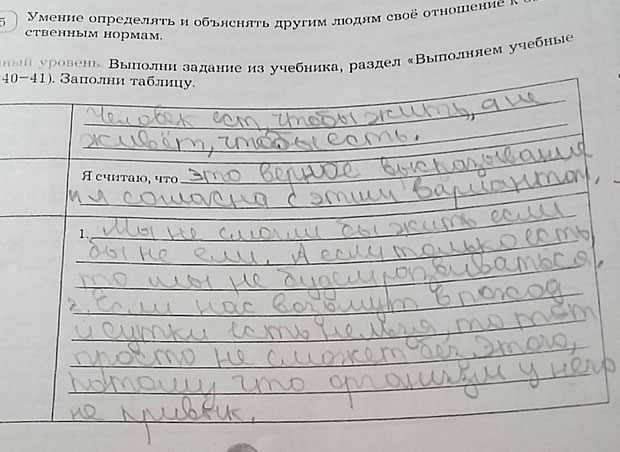 5 Умение определять и объяснять другим людям своё отношение к
ственным нормам.
ный уровень. Выполни задание из учебника, раздел «Выполняем учебные
40–41). Заполни таблицу.
Человек ест, чтобы жить, а не
живёт, чтобы есть.
Я считаю, что это верное высказывания
и я согласна с этим вариантом.
1. Мы не смогли бы жить если
бы не ели. А если только есть,
то мы не будем развиваться.
2. Если нас возьмут в поход
и сутки есть нельзя, то тот
просто не сможет без этого,
потому что организм у него
не привык.